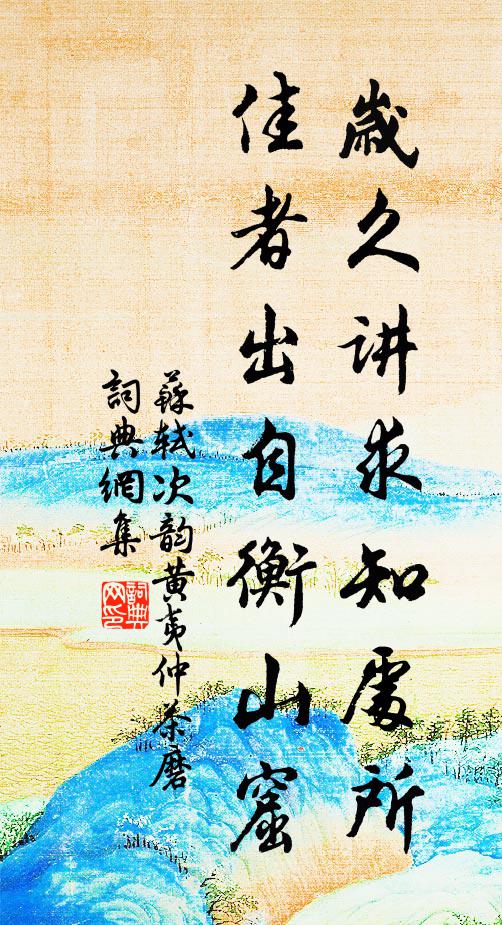 歲久讲求知處所
佳者出自衡山窟
蘇軾次韵黄夷仲茶磨
詞典網集
詞典
网印